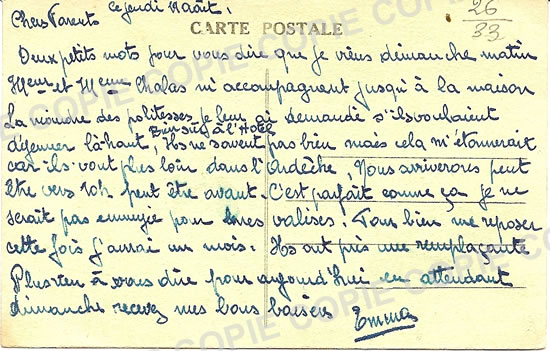 Chers Parents ce jeudi 18 août.
26
33
CARTE POSTALE
Deux petits mots pour vous dire que je viens dimanche matin
Meur et Meme Chalas m'accompagnent jusqu'à la maison
La moindre des politesses je leur ai demandé s'ils voulaient
déjeuner là-haut, Bien sûr à l'Hotel Ils ne savent pas bien mais cela m'étonnerait
car ils vont plus loin dans l'Ardèche, Nous arriverons peut
être vers 10h peut être avant. C'est parfait comme ça je ne
serait pas ennuyée pour mes valises. Tous bien me reposer
cette fois j'aurai un mois. Ils ont pris une remplaçante
Plus rien à vous dire pour aujourd'hui en attendant
dimanche recevez mes bons baisers
Emma
COPIE COPIE COPIE